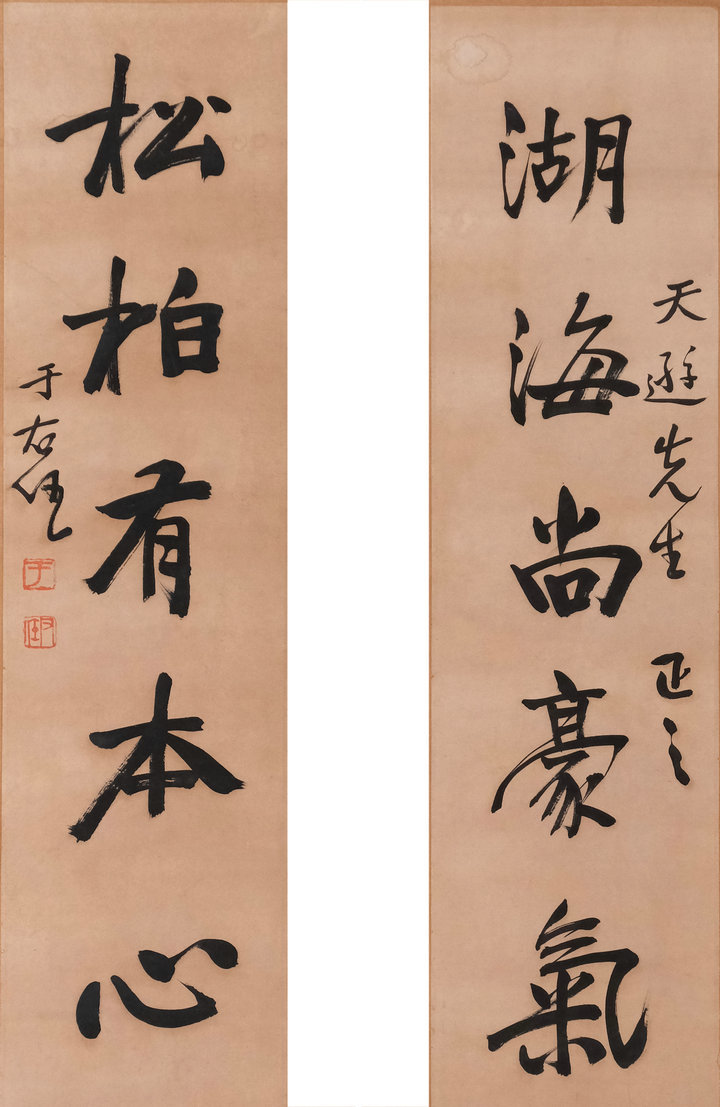 湖海尚豪氣
天遊先生 正之
松柏有本心
于右任